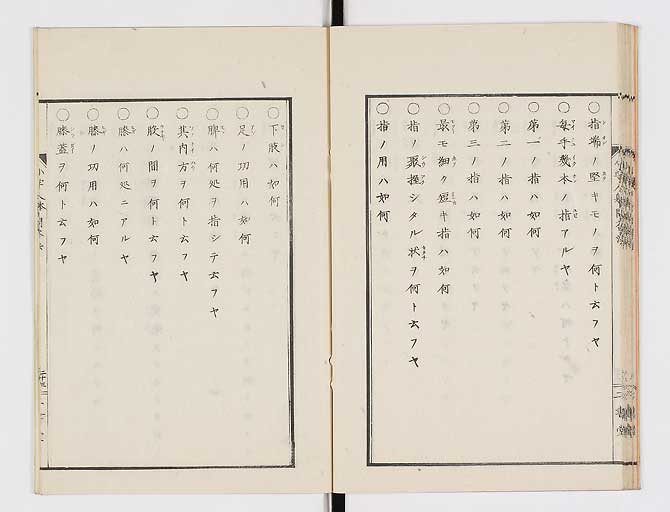 ○指端ノ堅キモノヲ何ト云フヤ
○毎手幾本ノ指アルヤ
○第一ノ指ハ如何
○第二ノ指ハ如何
○第三ノ指ハ如何
○最モ細ク短キ指ハ如何
○指ノ聚握シタル状ヲ何ト云フヤ
○指ノ用ハ如何
○下肢ハ如何
○足ノ功用ハ如何
○脾ハ何処ヲ指シテ云フヤ
○其内方ヲ何ト云フヤ
○股ノ間ヲ何ト云フヤ
○膝ハ何処ニアルヤ
○膝ノ功用ハ如何
○膝蓋ヲ何ト云フヤ